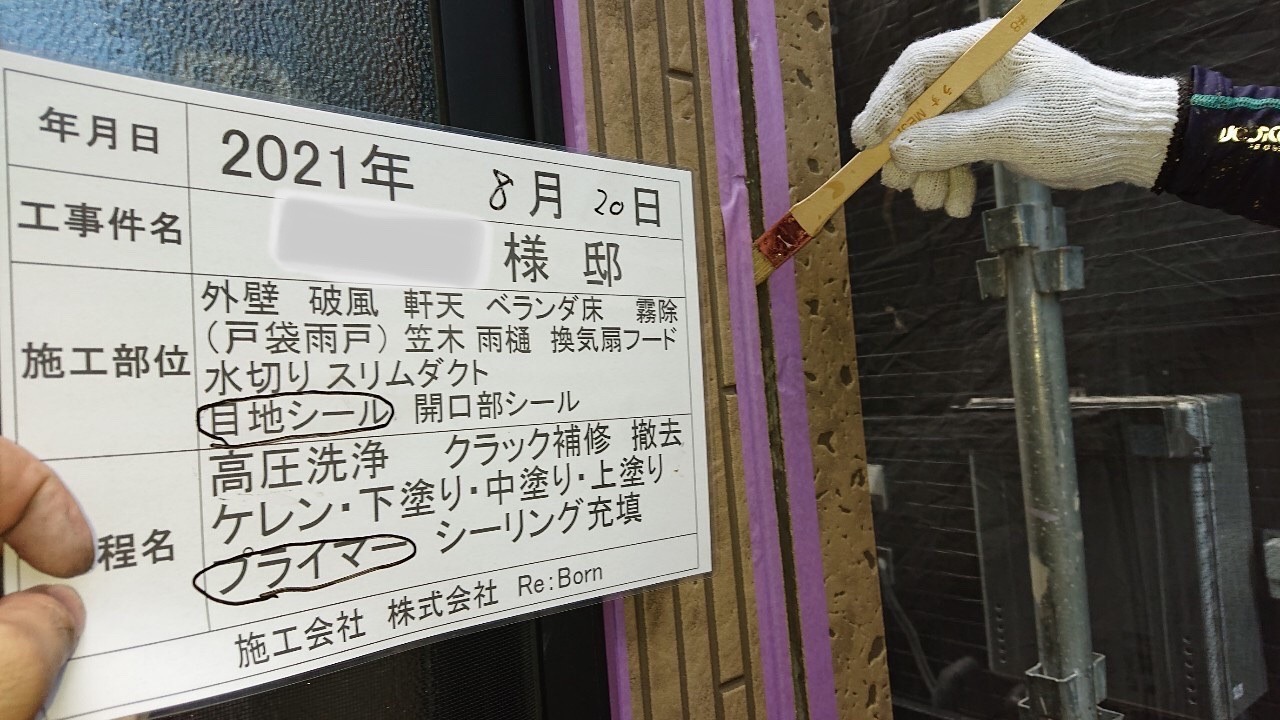 年月日 2021年 8月 20日
工事件名 様 邸
施工部位 外壁 破風 軒天 ベランダ床 霧除
(戸袋雨戸) 笠木 雨樋 換気扇フード
水切り スリムダクト
目地シール 開口部シール
程名 高圧洗浄 クラック補修 撤去
ケレン・下塗り・中塗り・上塗り
プライマー シーリング充填
施工会社 株式会社 Re:Born